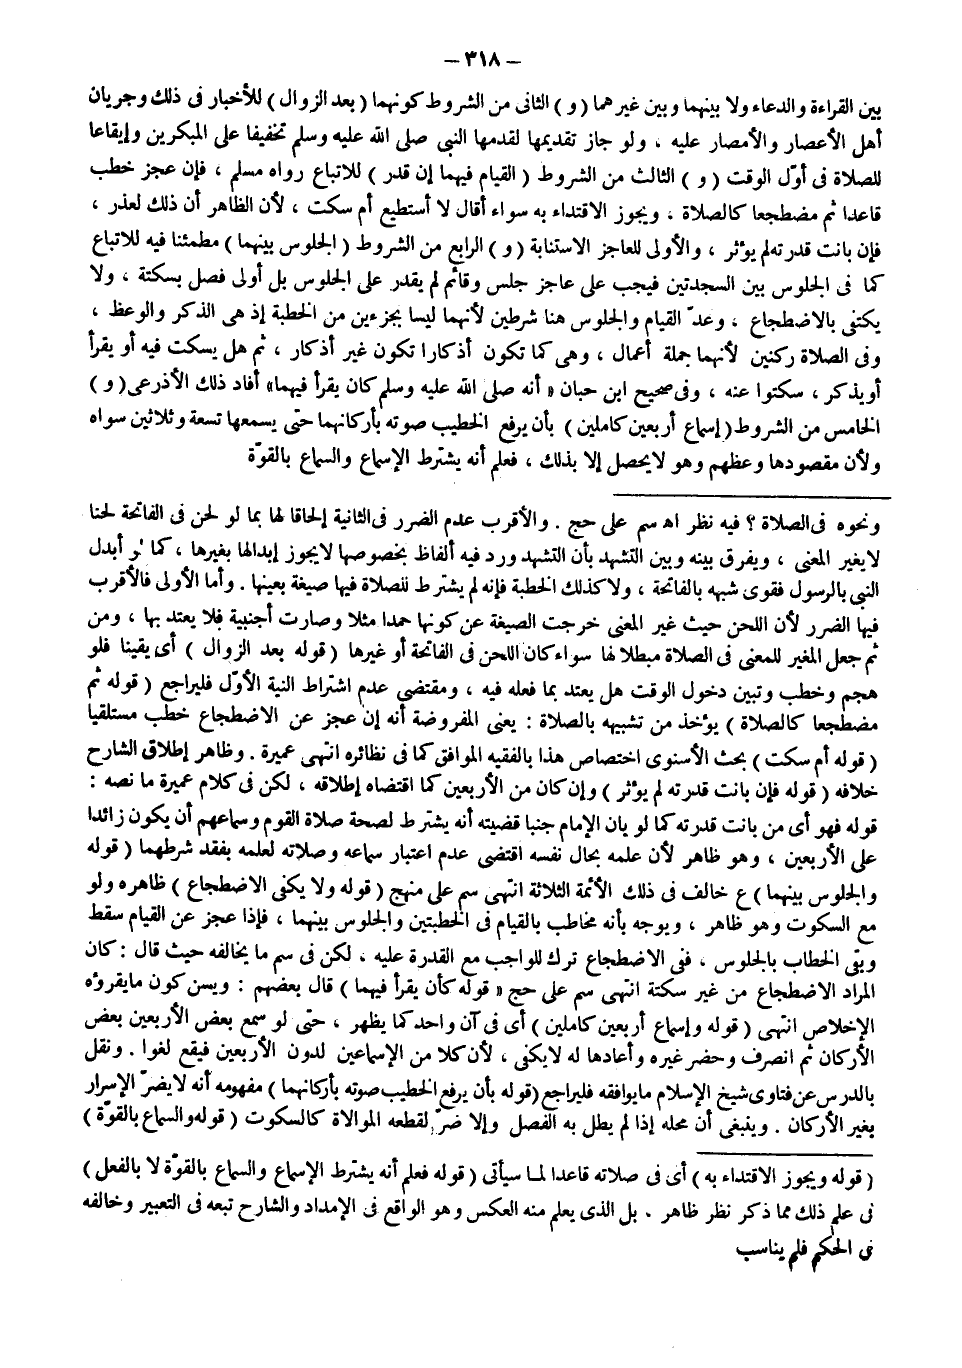 — ٣١٨ —
بين القراءة والدعاء ولا بينهما وبين غيرهما ( و ) الثانى من الشروط كونهما ( بعد الزوال ) للأخبار فى ذلك وجريان
أهل الأعصار والأمصار عليه ، ولو جاز تقديمها لقدمها النبى صلى الله عليه وسلم تخفيفا على المبكرين وإيقاعا
للصلاة فى أوّل الوقت ( و ) الثالث من الشروط ( القيام فيهما إن قدر ) للاتباع رواه مسلم ، فإن عجز خطب
قاعدا ثم مضطجعا كالصلاة ، ويجوز الاقتداء به سواء أقال لا أستطيع أم سكت ، لأن الظاهر أن ذلك لعذر ،
فإن بانت قدرته لم يؤثر ، والأولى للعاجز الاستنابة ( و ) الرابع من الشروط ( الجلوس بينهما ) مطمئنا فيه للاتباع
كما فى الجلوس بين السجدتين فيجب على عاجز جلس وقائم لم يقدر على الجلوس بل أولى فصل بسكتة ، ولا
يكتفى بالاضطجاع ، وعدّ القيام والجلوس هنا شرطين لأنهما ليسا بجزءين من الخطبة إذ هى الذكر والوعظ ،
وفى الصلاة ركنين لأنهما جملة أعمال ، وهى كما تكون أذكارا تكون غير أذكار ، ثم هل يسكت فيه أو يقرأ
أو يذكر ، سكتوا عنه ، وفى صحيح ابن حبان « أنه صلى الله عليه وسلم كان يقرأ فيهما» أفاد ذلك الأذرعى ( و )
الخامس من الشروط ( إسماع أربعين كاملين ) بأن يرفع الخطيب صوته بأركانهما حتى يسمعها تسعة وثلاثين سواه
ولأن مقصودها وعظهم وهو لا يحصل إلا بذلك ، فعلم أنه يشترط الإسماع والسماع بالقوّة
ونحوه فى الصلاة ؟ فيه نظر اهـ سم على حج . والأقرب عدم الضرر فى الثانية إلحاقا لها بما لو لحن فى الفاتحة لحنا
لا يغير المعنى ، ويفرق بينه وبين التشهد بأن التشهد ورد فيه ألفاظ بخصوصها لا يجوز إبدالها بغيرها ، كما لو أبدل
النبى بالرسول فقوى شبهه بالفاتحة ، ولا كذلك الخطبة فإنه لم يشترط للصلاة فيها صيغة بعينها . وأما الأولى فالأقرب
فيها الضرر لأن اللحن حيث غير المعنى خرجت الصيغة عن كونها حمدا مثلا وصارت أجنبية فلا يعتد بها ، ومن
ثم جعل المغير للمعنى فى الصلاة مبطلا لها سواء كان اللحن فى الفاتحة أو غيرها ( قوله بعد الزوال ) أى يقينا فلو
هجم وخطب وتبين دخول الوقت هل يعتد بما فعله فيه ، ومقتضى عدم اشتراط النية الأوّل فليراجع ( قوله ثم
مضطجعا كالصلاة ) يؤخذ من تشبيهه بالصلاة : يعنى المفروضة أنه إن عجز عن الاضطجاع خطب مستلقيا
( قوله أم سكت ) بحث الأسنوى اختصاص هذا بالفقيه الموافق كما فى نظائره انتهى عميرة . وظاهر إطلاق الشارح
خلافه ( قوله فإن بانت قدرته لم يؤثر ) وإن كان من الأربعين كما اقتضاه إطلاقه ، لكن فى كلام عميرة ما نصه :
قوله فهو أى من بانت قدرته كما لو بان الإمام جنبا قضيته أنه يشترط لصحة صلاة القوم وسماعهم أن يكون زائدا
على الأربعين ، وهو ظاهر لأن علمه بحال نفسه اقتضى عدم اعتبار سماعه وصلاته لعلمه بفقد شرطهما ( قوله
والجلوس بينهما ) ع خالف فى ذلك الأئمة الثلاثة انتهى سم على منهج ( قوله ولا يكفى الاضطجاع ) ظاهره ولو
مع السكوت وهو ظاهر ، ويوجه بأنه مخاطب بالقيام فى الخطبتين والجلوس بينهما ، فإذا عجز عن القيام سقط
وبقى الخطاب بالجلوس ، ففى الاضطجاع ترك للواجب مع القدرة عليه ، لكن فى سم ما يخالفه حيث قال : كان
المراد الاضطجاع من غير سكتة انتهى سم على حج « قوله كأن يقرأ فيهما ) قال بعضهم : ويسن كون ما يقروٴه
الإخلاص انتهى ( قوله وإسماع أربعين كاملين ) أى فى آن واحد كما يظهر ، حتى لو سمع بعض الأربعين بعض
الأركان ثم انصرف وحضر غيره وأعادها له لا يكفى ، لأن كلا من الإسماعين لدون الأربعين فيقع لغوا . ونقل
بالدرس عن فتاوى شيخ الإسلام ما يوافقه فليراجع ( قوله بأن يرفع الخطيب صوته بأركانهما ) مفهومه أنه لا يضرّ الإسرار
بغير الأركان . وينبغى أن محله إذا لم يطل به الفصل وإلا ضرّ لقطعه الموالاة كالسكوت ( قوله والسماع بالقوّة )
( قوله ويجوز الاقتداء به ) أى فى صلاته قاعدا لما سيأتى ( قوله فعلم أنه يشترط الإسماع والسماع بالقوّة لا بالفعل )
فى علم ذلك مما ذكر نظر ظاهر . بل الذى يعلم منه العكس وهو الواقع فى الإمداد والشارح تبعه فى التعبير وخالفه
فى الحكم فلم يناسب